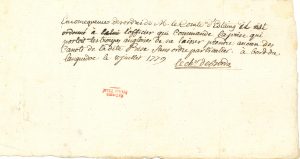 En consequence des ordres de M. le Comte d'Estaing il est
ordonné à l'officier qui commande la prise qui
portoit les troupes angloises de ne laisser prendre aucun des
Canots de la dite prise sans ordre particulier. à bord du
Languedoc le juillet 1779
le Ch. de Borda